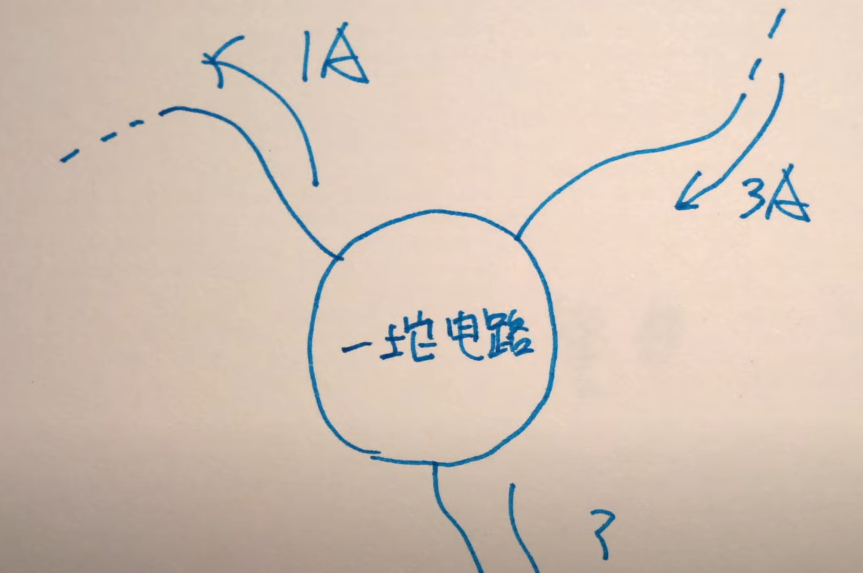 1A
3A
一坨电路
?